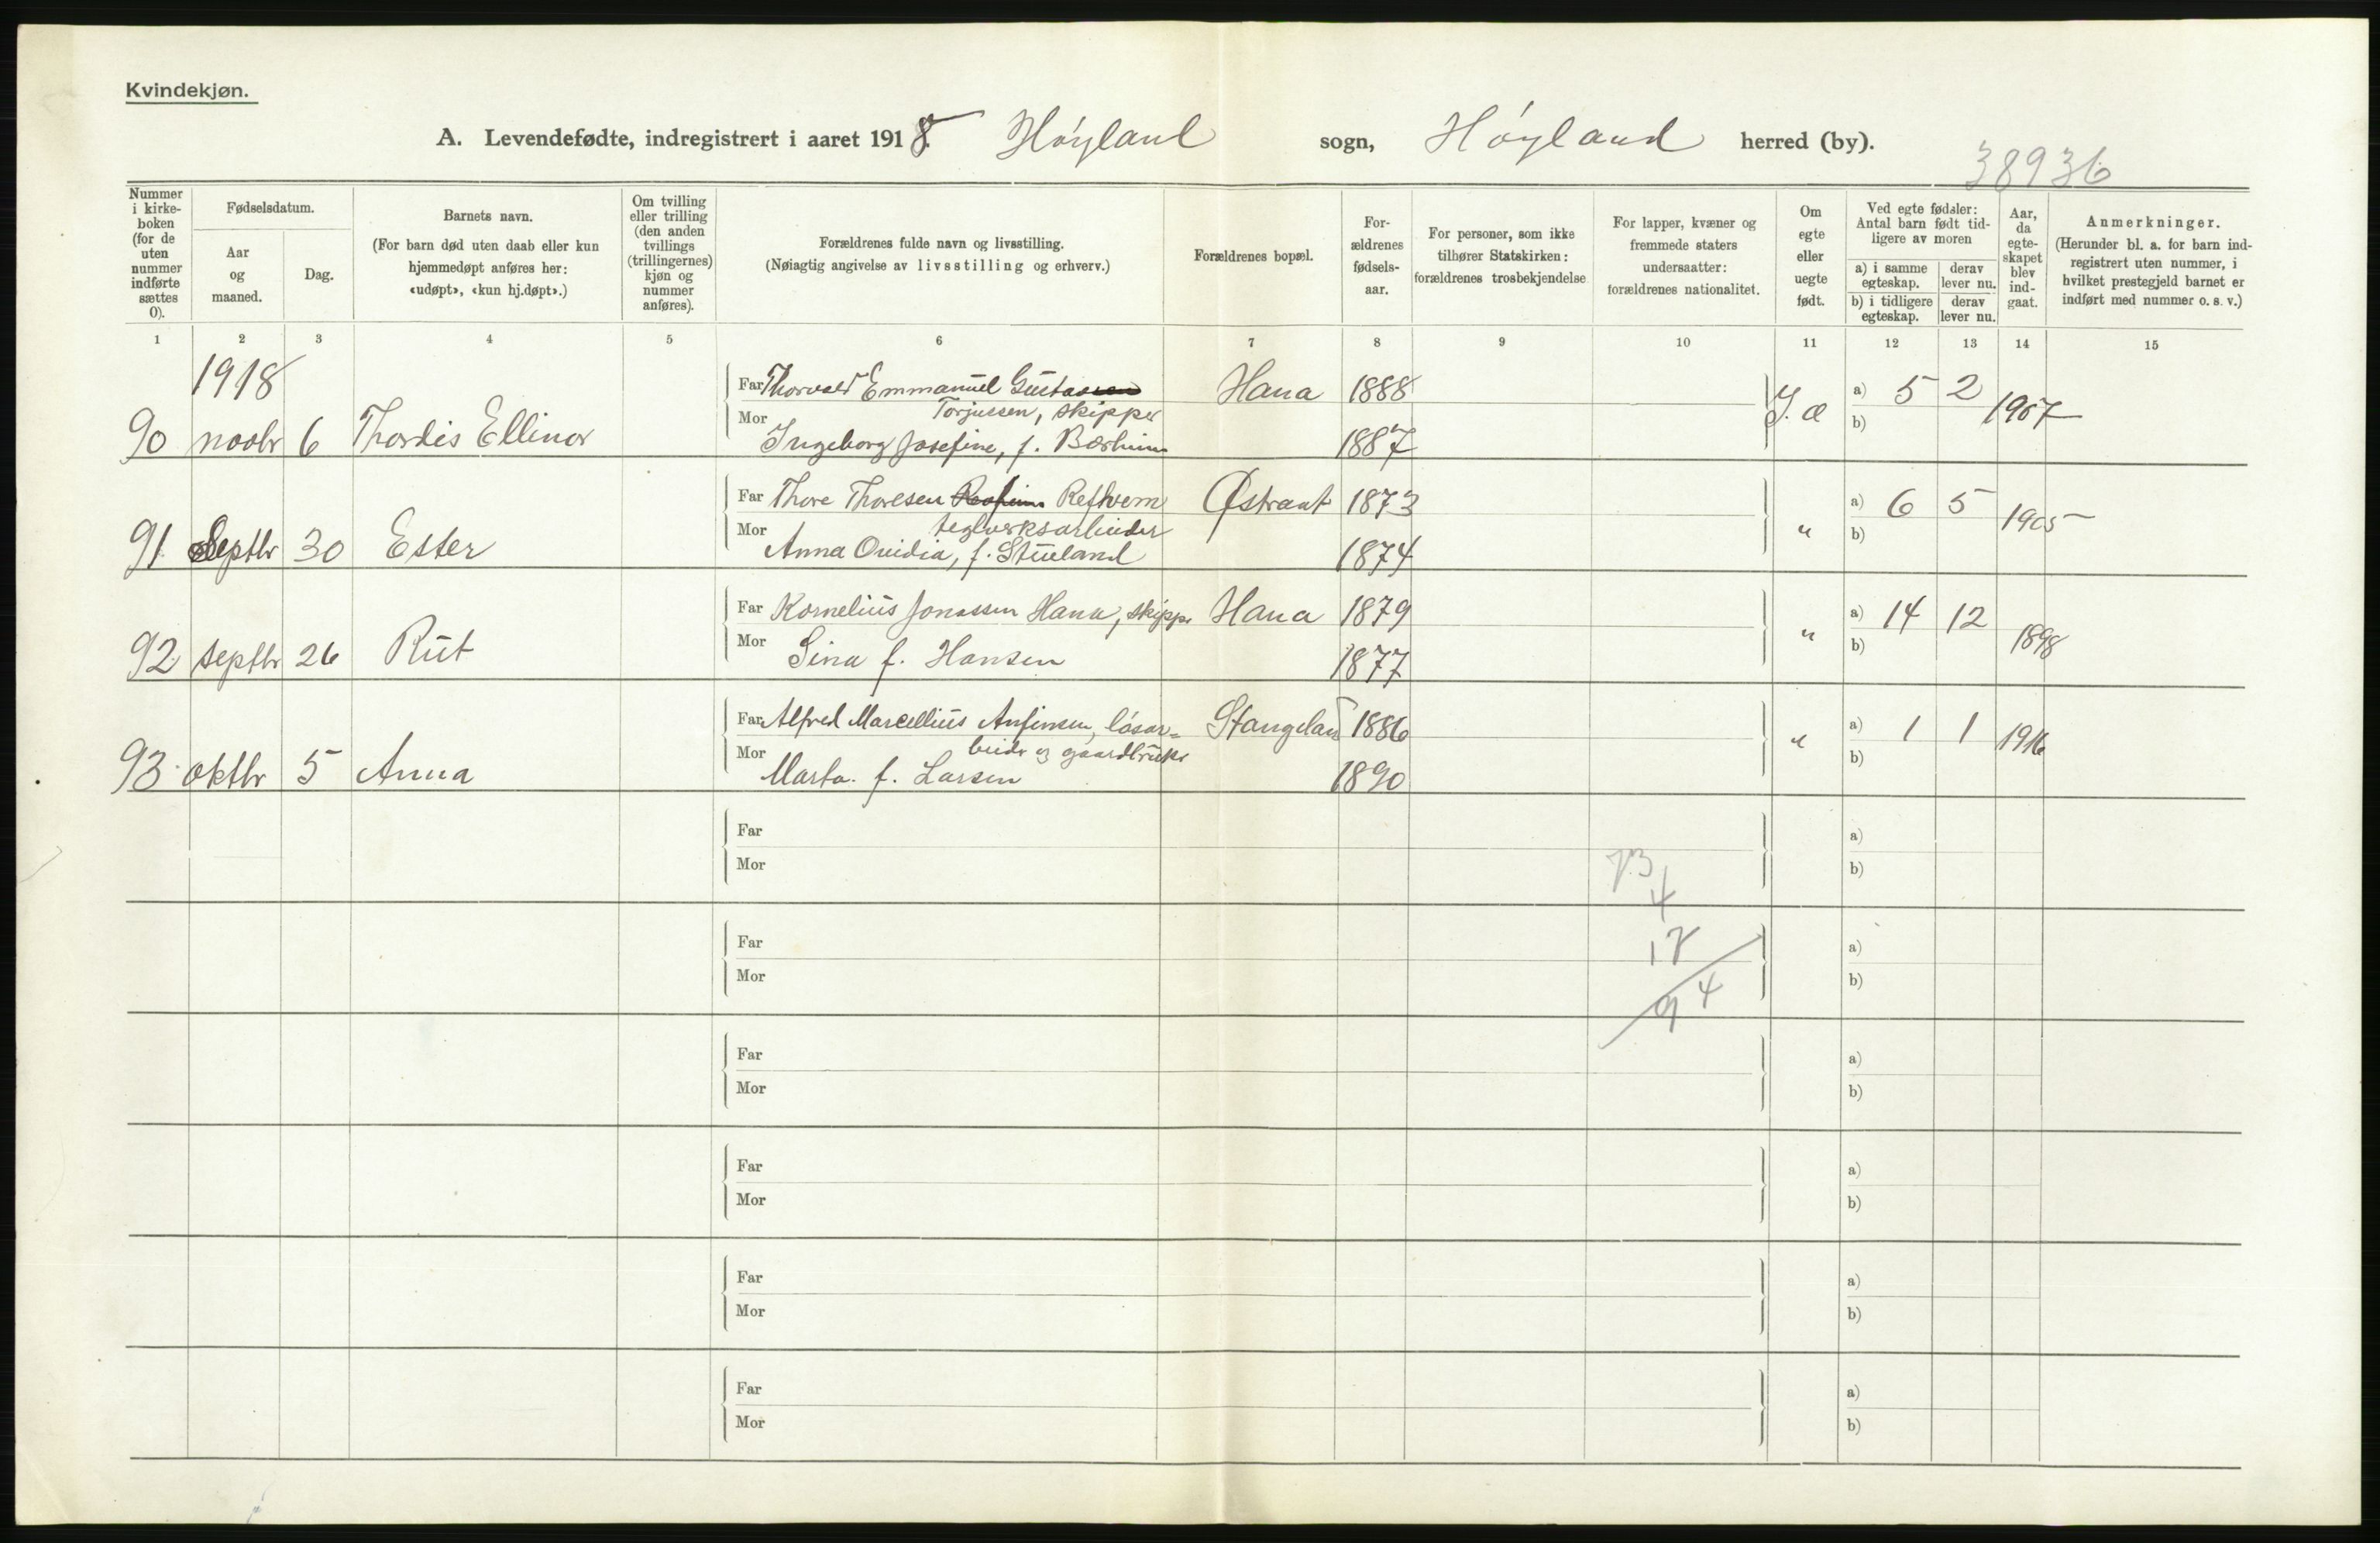 Kvindekjøn.
A. Levendefødte, indregistrert i aaret 1918. Höyland sogn, Höyland herred (by).
38936
Nummer i kirkeboken (for de uten nummer indførte sættes 0).
Fødselsdatum.
Aar og maaned.
Dag.
Barnets navn.
(For barn død uten daab eller kun hjemmedøpt anføres her: «udøpt», «kun hj.døpt».)
Om tvilling eller trilling (den anden tvillings (trillingernes) kjøn og nummer anføres).
Forældrenes fulde navn og livsstilling.
(Nøiagtig angivelse av livsstilling og erhverv.)
Forældrenes bopæl.
For-ældrenes fødsels-aar.
For personer, som ikke tilhører Statskirken: forældrenes trosbekjendelse
For lapper, kvæner og fremmede staters undersaatter: forældrenes nationalitet.
Om egte eller uegte født.
Ved egte fødsler: Antal barn født tid-ligere av moren
a) i samme egteskap.
derav lever nu.
b) i tidligere egteskap.
derav lever nu.
Aar, da egte-skapet blev ind-gaat.
Anmerkninger.
(Herunder bl. a. for barn ind-registrert uten nummer, i hvilket prestegjeld barnet er indført med nummer o. s. v.)
1 2 3 4 5 6 7 8 9 10 11 12 13 14 15
1918
Far Thorvald Emmanuel Gustavsen Hana 1888 a) 5 2 1907
Torjussen, skipper
90 novbr 6 Thordis Ellinor Mor Ingeborg Josefine, f. Bærheim 1887 b)
Far Thore Thoresen Refheim Refhvem Østraat 1873 a) 6 5 1905
teglverksarbeider
91 Septbr 30 Ester Mor Anna Ovidia, f. Stueland 1874 " b)
Far Kornelius Jonassen Hana, skipper Hana 1879 a) 14 12 1898
92 septbr 26 Rut Mor Sina f. Hansen 1877 " b)
Far Alfred Marcellius Anfinsen, lösar- Stangeland 1886 a) 1 1 1916
beider og gaardbruker
93 oktbr 5 Anna Mor Marta f. Larsen 1890 " b)
Far a)
Mor b)
4
Far a)
Mor b)
94
Far a)
Mor b)
Far a)
Mor b)
Far a)
Mor b)
Far a)
Mor b)